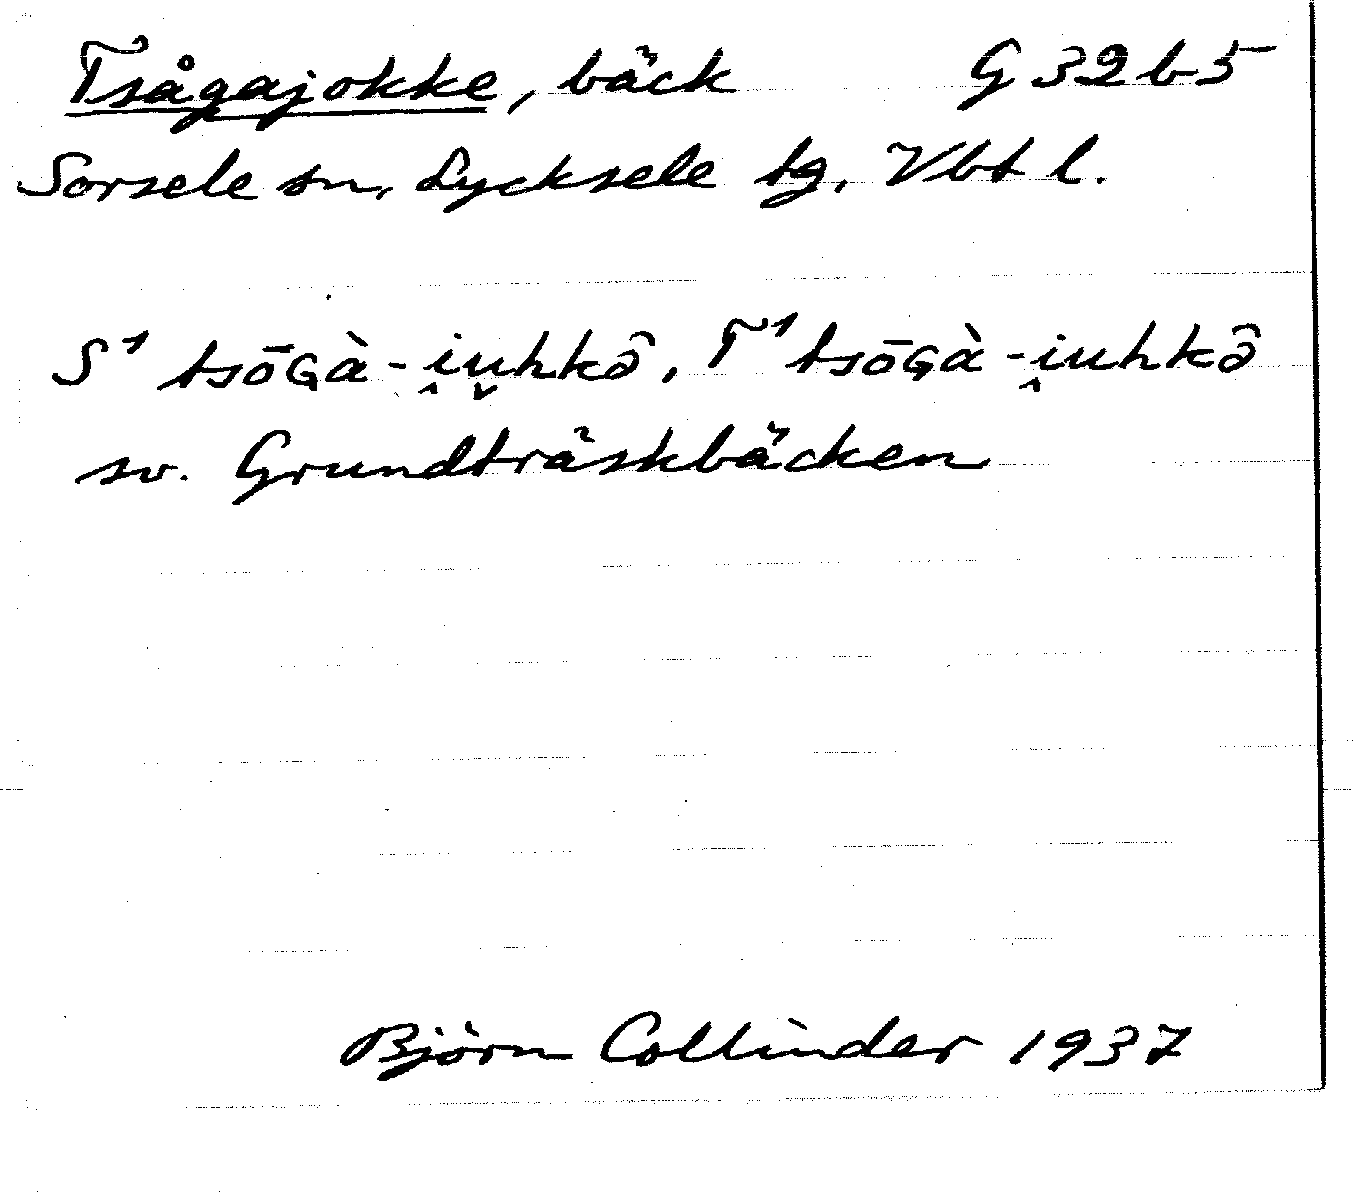 Tsågajokke, bäck G 32 b 5
Sorsele sn, Lycksele tg, Vbt l.
S¹ tsōGà-i̭u̬hkô, T¹ tsōGà-i̭uhkô
sv. Grundträskbäcken
Björn Collinder 1937